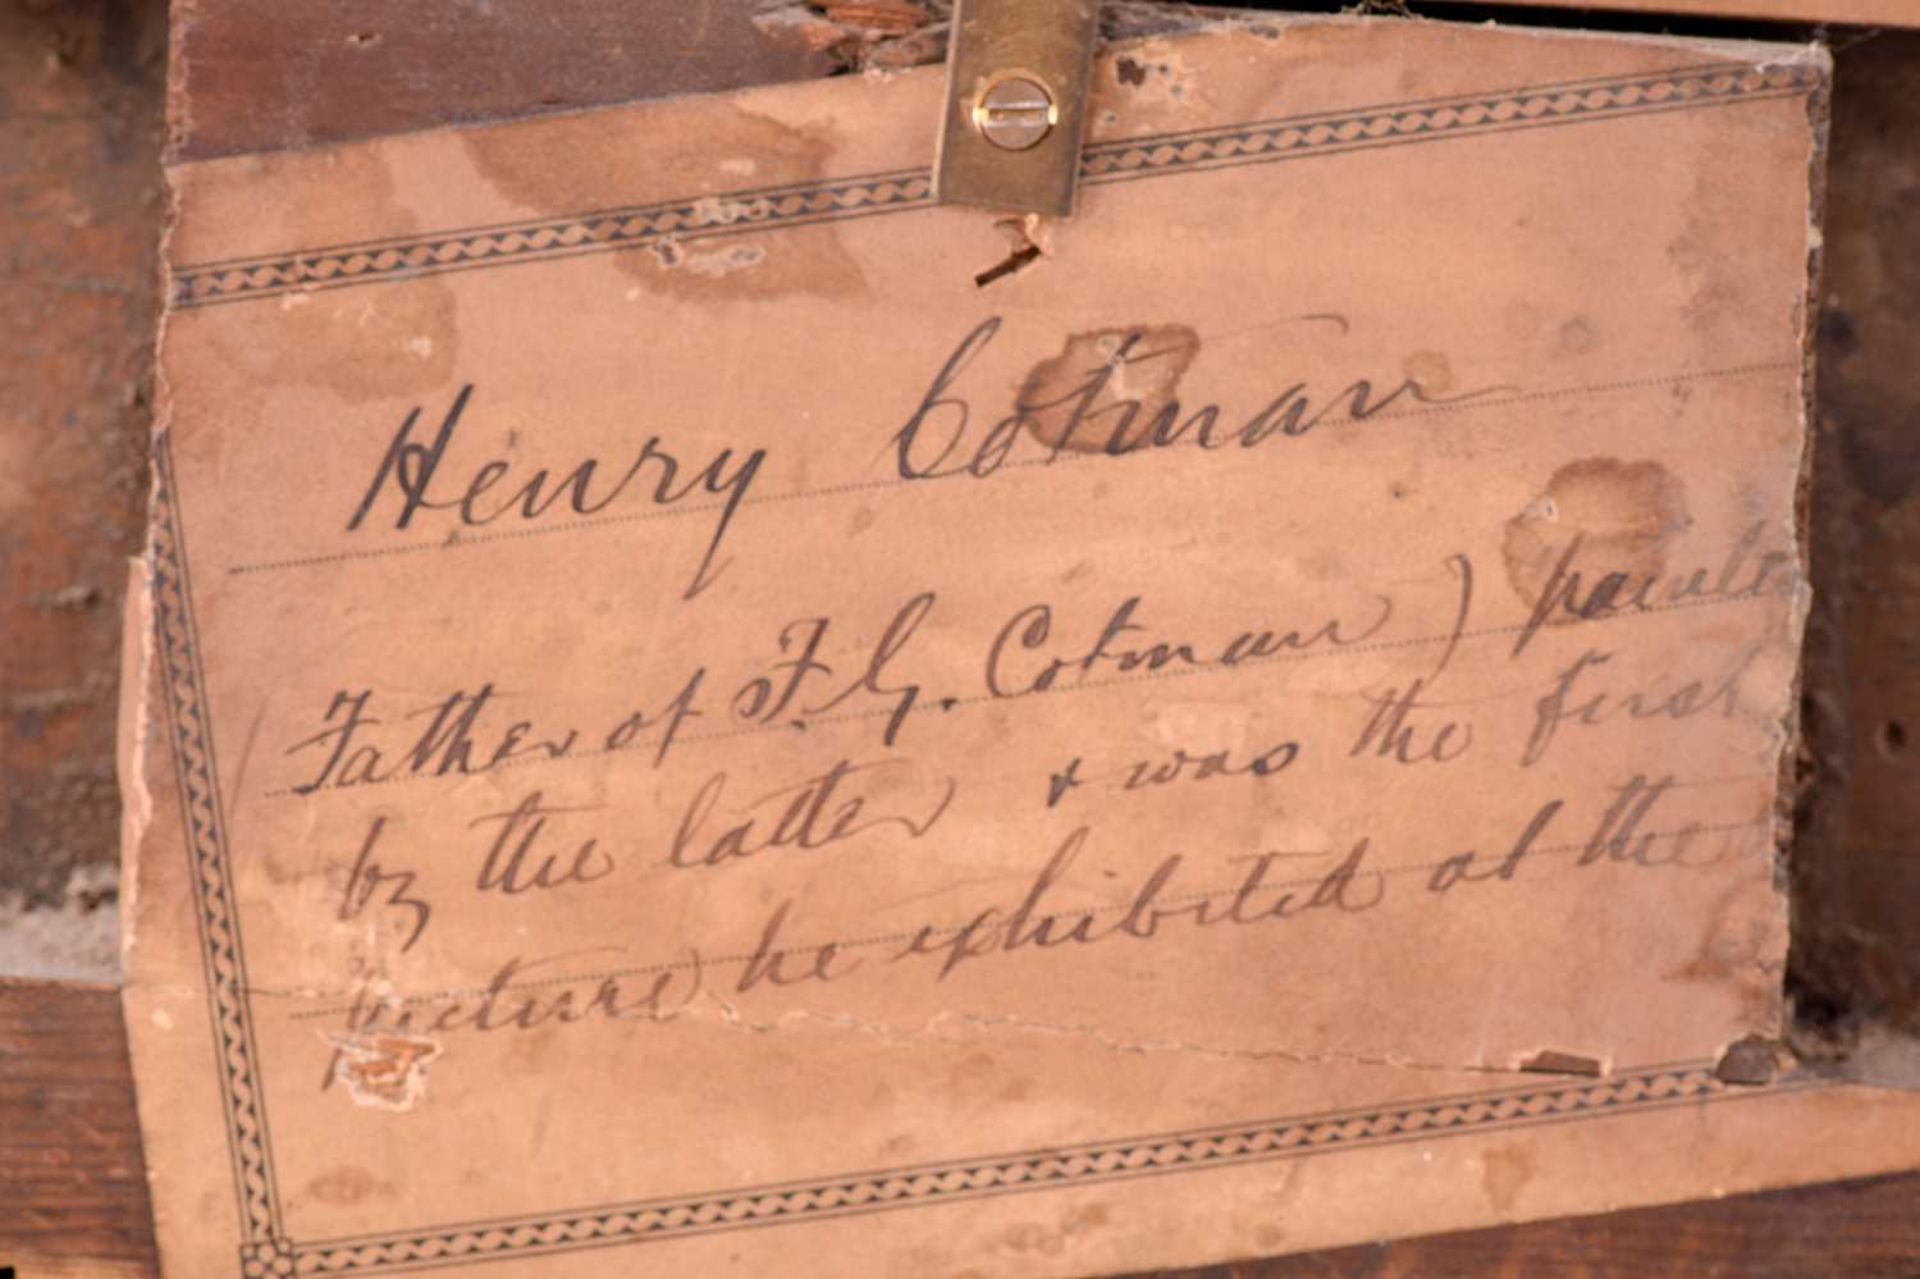 Henry Cotman
(Father of F.G. Cotman) painte
by the latter & was the first
picture he exhibited at the